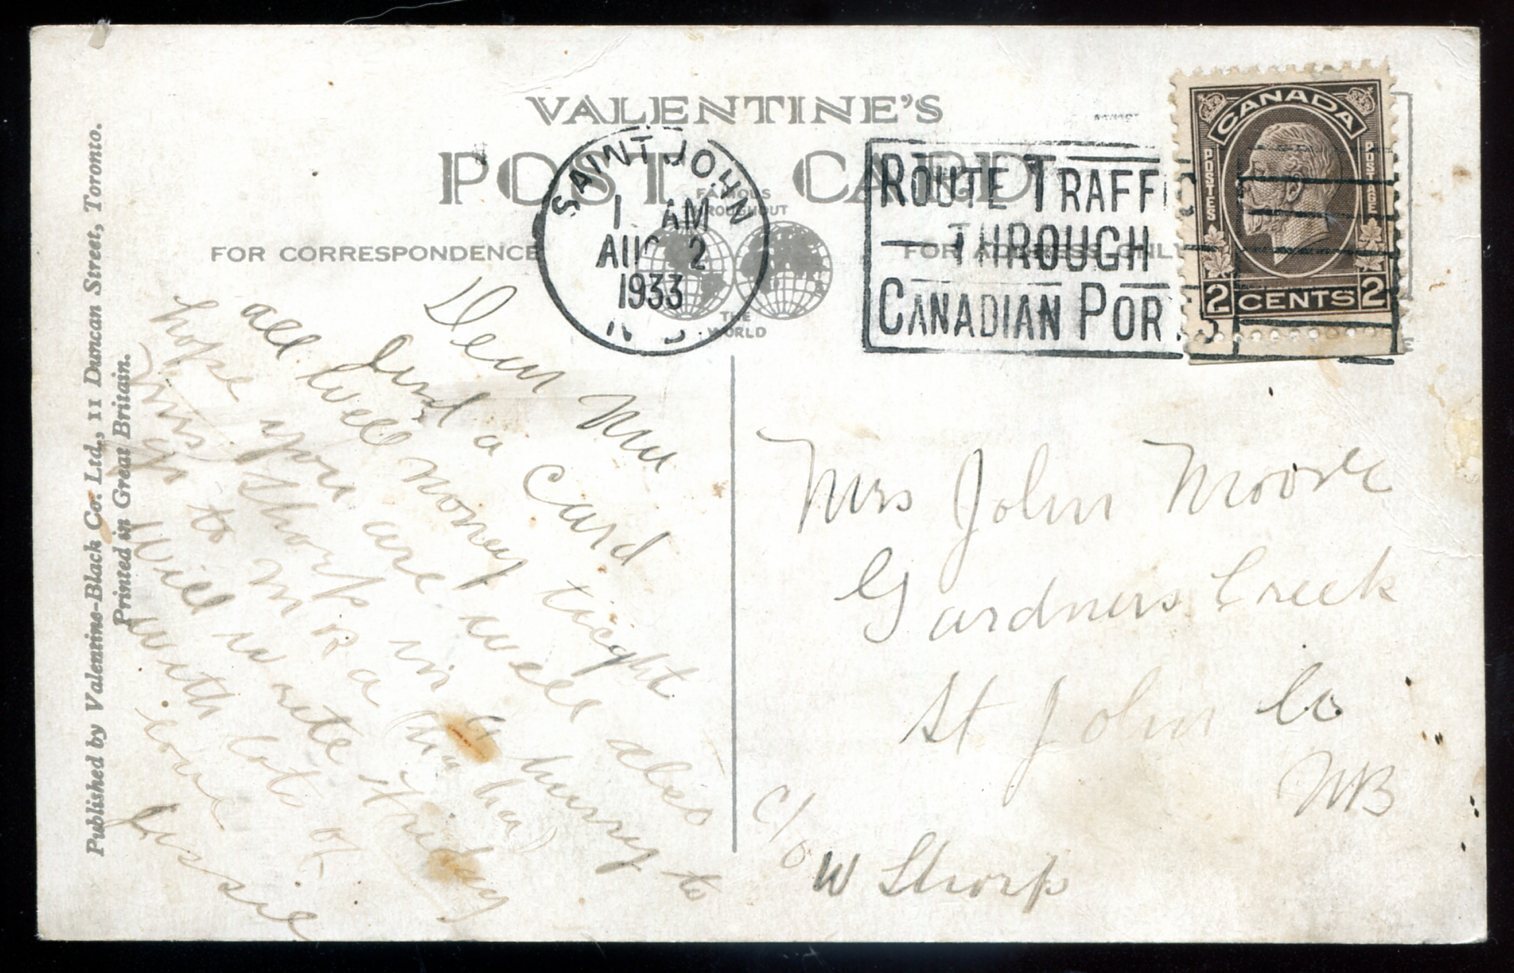 VALENTINE'S
POST CARD
FAMOUS
THROUGHOUT
THE
WORLD
FOR CORRESPONDENCE
FOR ADDRESS ONLY
SAINT JOHN
1 AM
AUG 2
1933
N.B.
ROUTE TRAFFIC
THROUGH
CANADIAN PORTS
CANADA
POSTES
POSTAGE
2 CENTS 2
Published by Valentine-Black Co. Ltd., 11 Duncan Street, Toronto.
Printed in Great Britain.
Dear Mu
Just a card
all well money tight
hope you are well also
Mrs Thorp in a hurry to
go to M is a (ha ha)
Will write Friday
with lots of
love
Jessie
Mrs John Moore
Gardners Creek
St John Co
NB
C/o
W Thorp